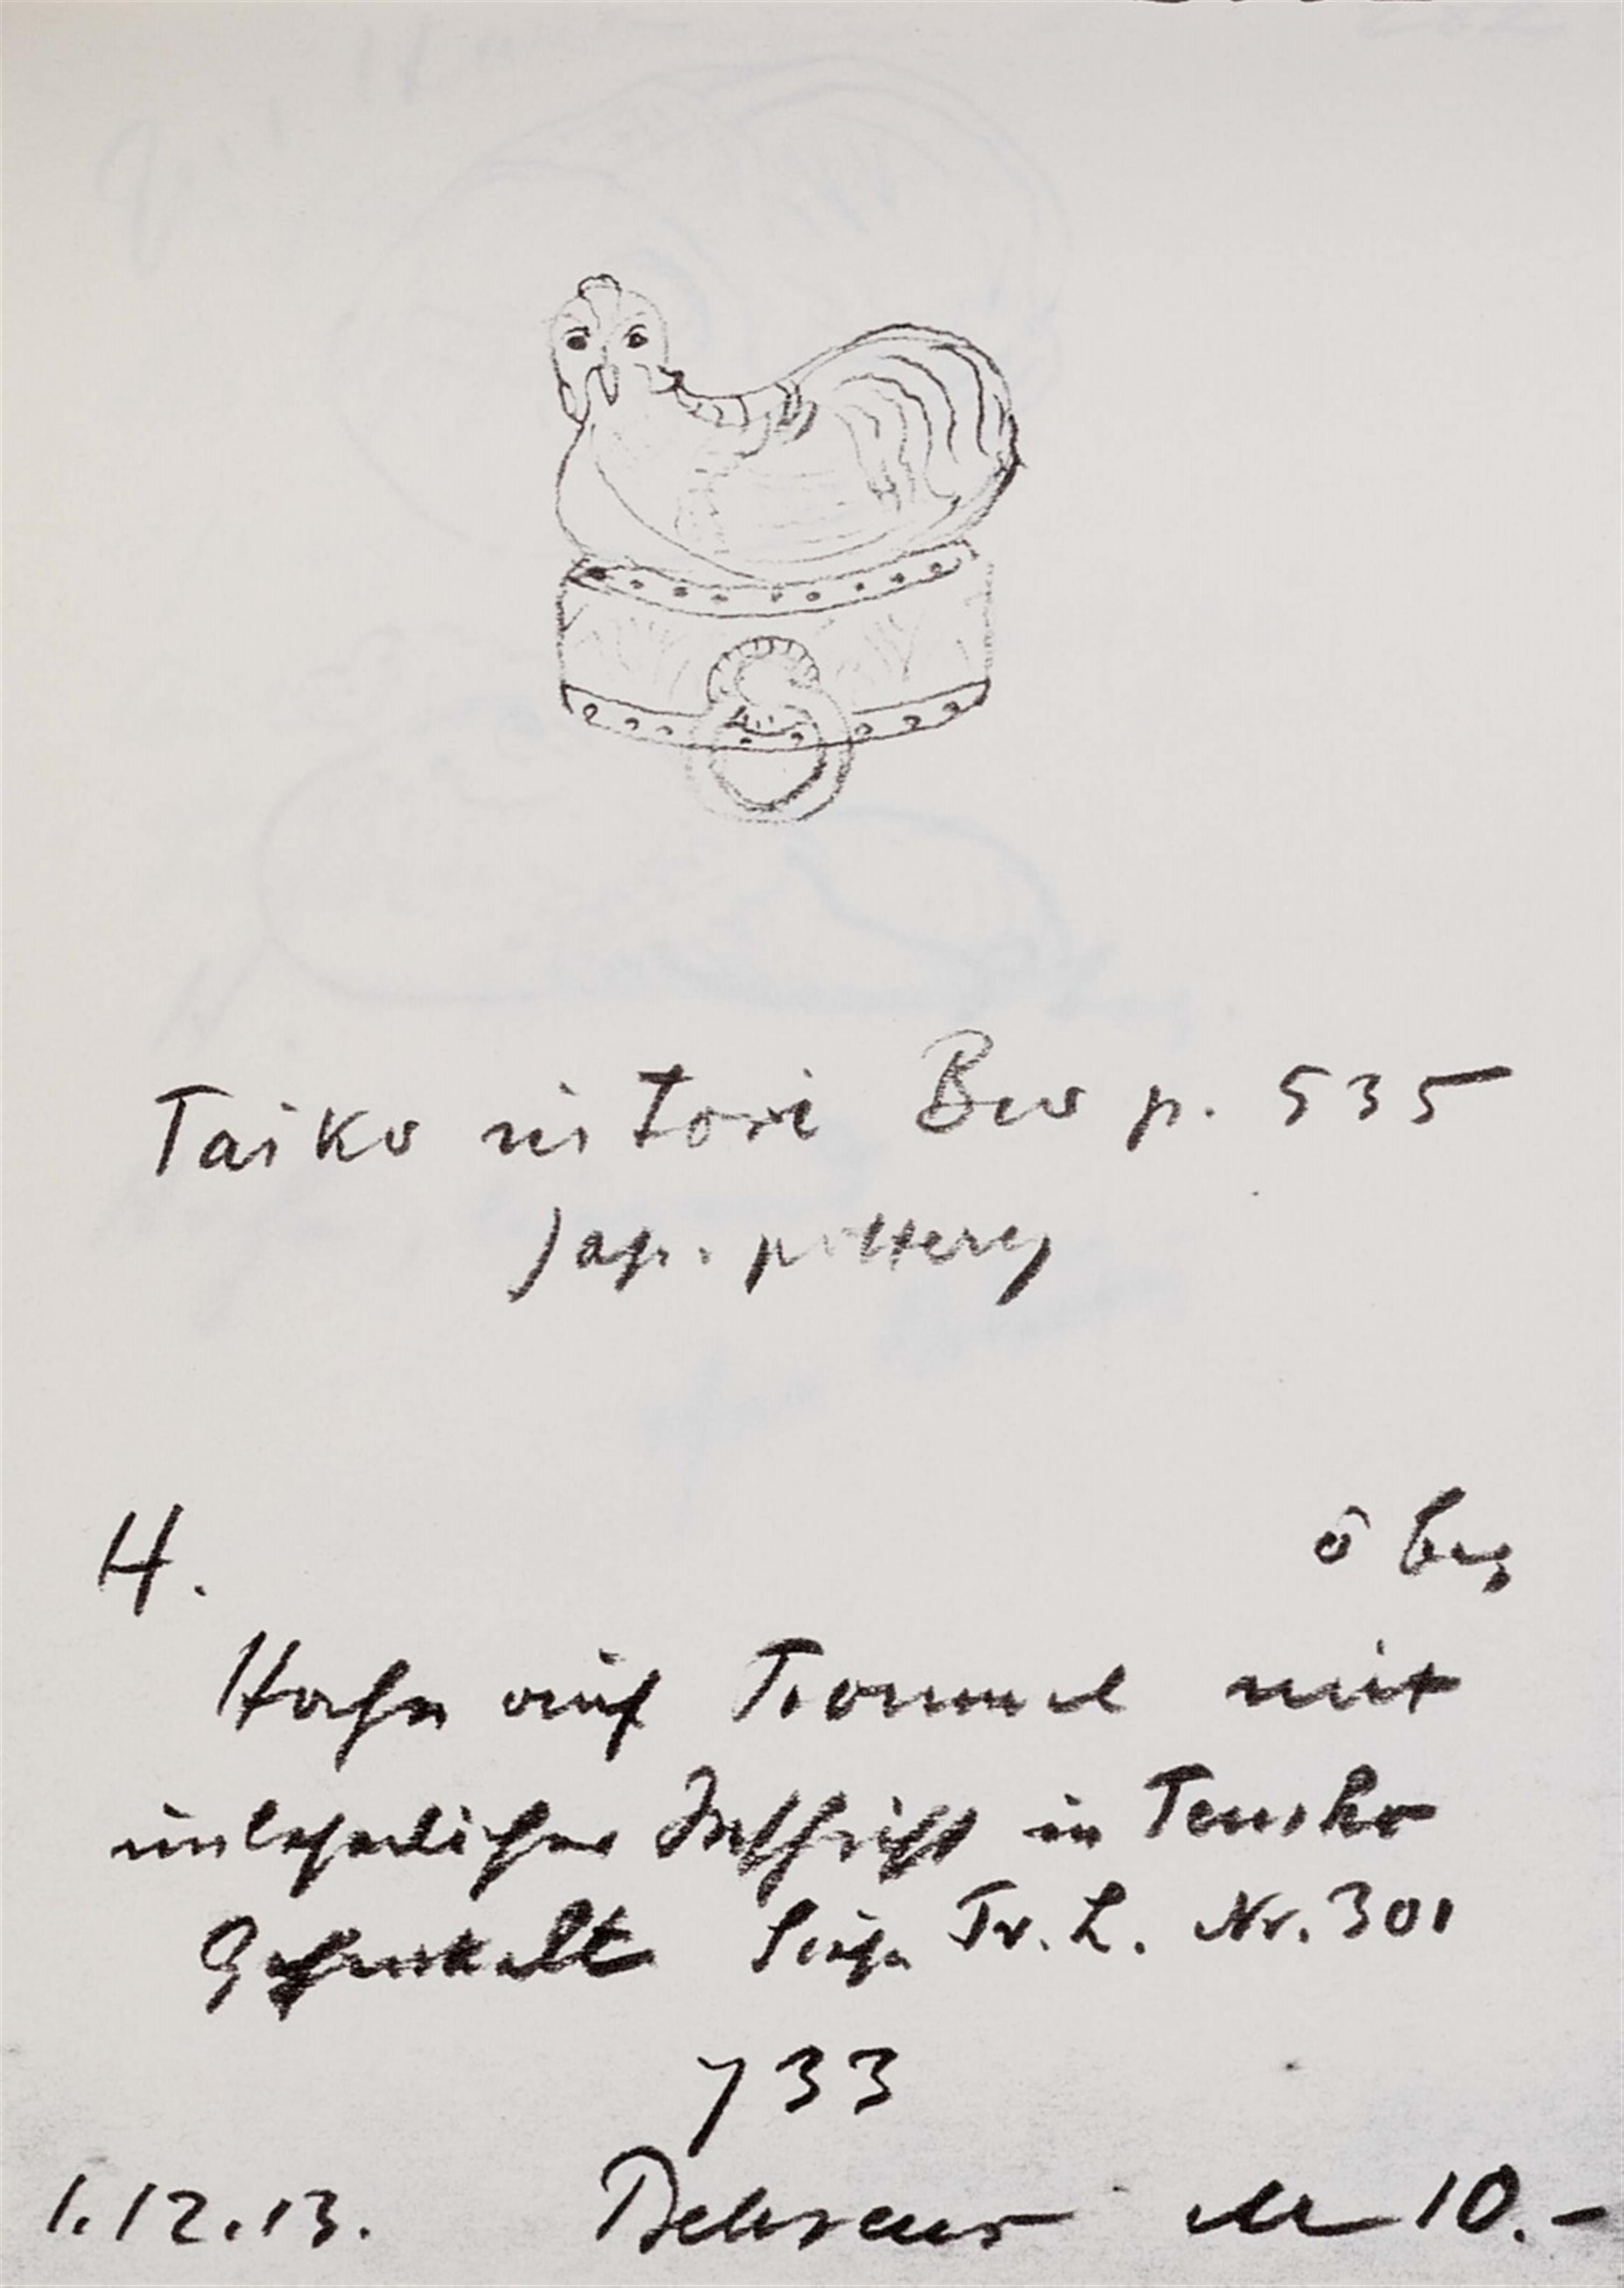 Taiko ni tori Bw p. 535
Jap. pottery
H. ö bez
Hahn auf Trommel mit
unleserlicher Inschrift in Tensho
Siehe Tr. L. Nr. 301
733
1.12.13. Behrens M 10.-